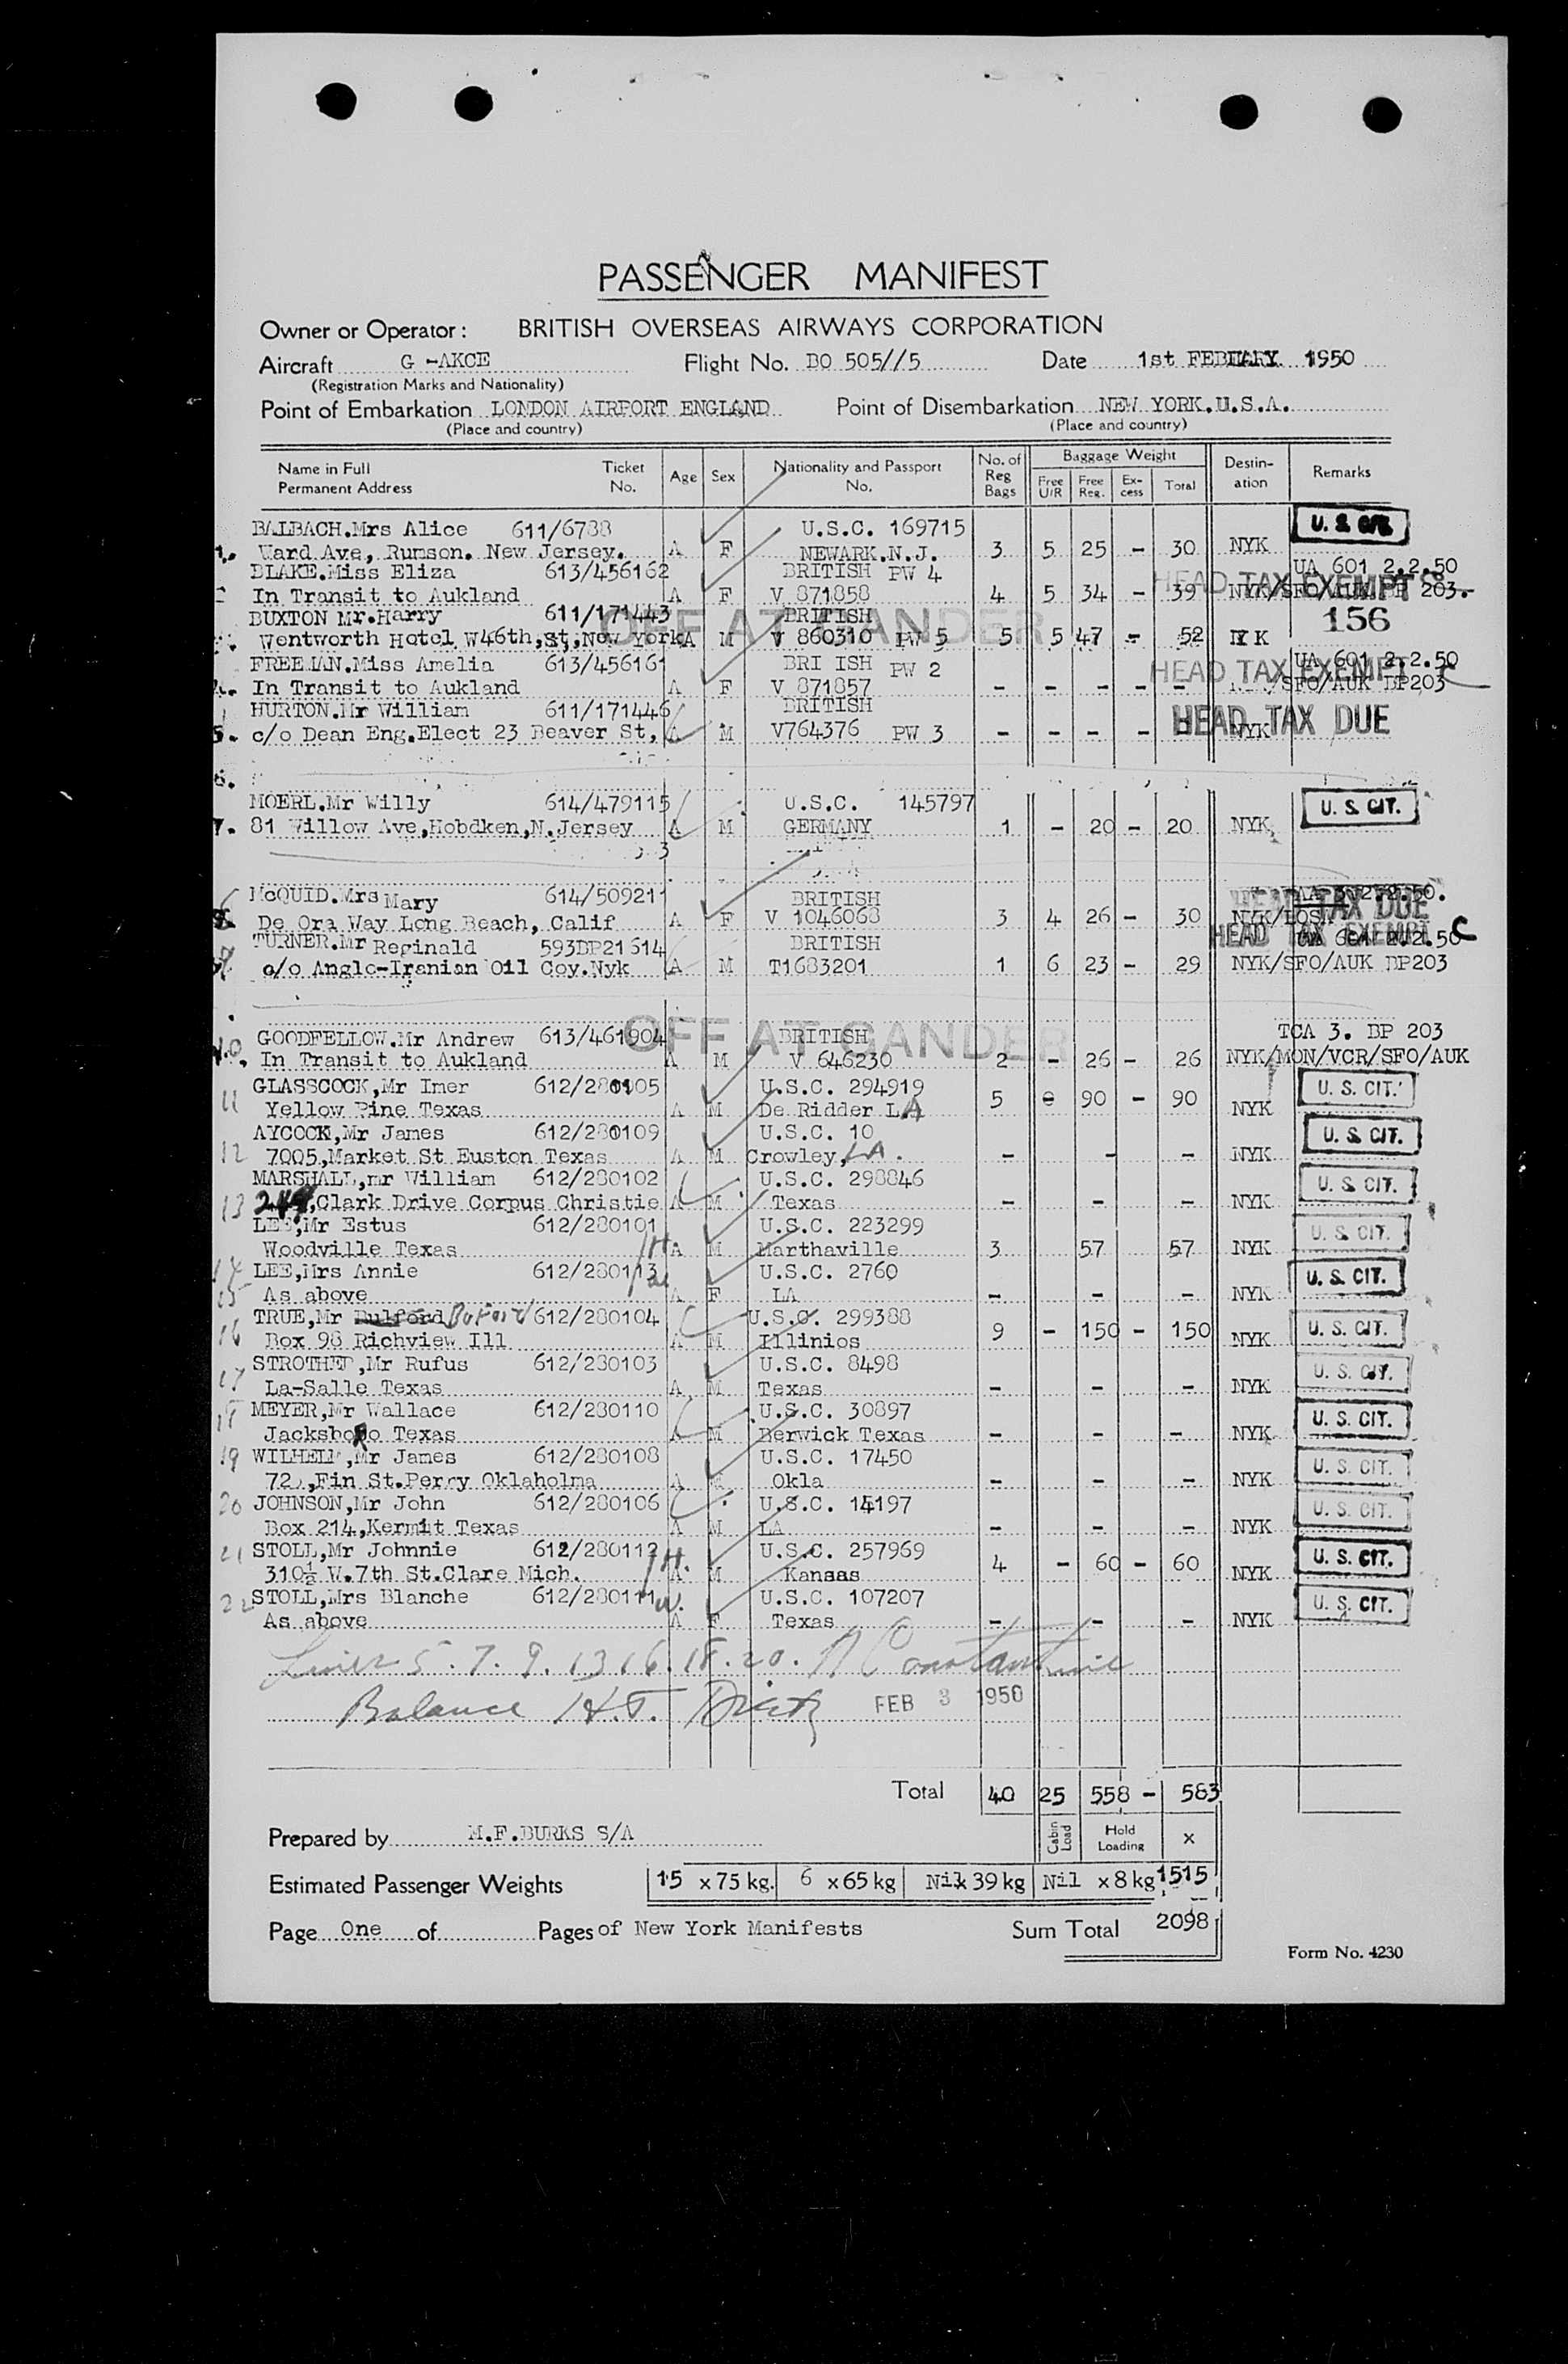 PASSENGER MANIFEST
Owner or Operator: BRITISH OVERSEAS AIRWAYS CORPORATION
Aircraft G -AKCE Flight No. BO 505//5 Date 1st 1950
(Registration Marks and Nationality)
Point of Embarkation LONDON AIRPORT ENGLAND Point of Disembarkation NEW YORK.U.S.A.
(Place and country) (Place and country)
Name in Full Permanent Address Ticket No. Age Sex Nationality and Passport No. No. of Reg Bags Baggage Weight Free U/R Free Reg. Ex-cess Total Destin-ation Remarks
BALBACH.Mrs Alice 611/6788 U.S.C. 169715
1. Ward Ave, Rumson. New Jersey. A F NEWARK.N.J. 3 5 25 - 30 NYK
BLAKE.Miss Eliza 613/456162 BRITISH PW 4 UA 601 2.2.50
In Transit to Aukland A F V 871858 4 5 34 - 39 NYK/SFO/AUK 203. HEAD TAX EXEMPT
BUXTON Mr.Harry 611/171443 BRITISH OFF AT GANDER 156
Wentworth Hotel W46th,St,New York A M V 860310 PW 5 5 5 47 - 52
FREEMAN.Miss Amelia 613/456161 BRI ISH PW 2 UA 601 2.2.50
In Transit to Aukland A F V 871857 - - - - - /SFO/AUK DP203 HEAD TAX EXEMPT
HURTON.Mr William 611/171446 BRITISH
5. c/o Dean Eng.Elect 23 Beaver St, A M V764376 PW 3 - - - - NYK HEAD TAX DUE
6.
MOERL.Mr Willy 614/479115 U.S.C. 145797 U. S. CIT.
7. 81 Willow Ave,Hobdken,N.Jersey A M GERMANY 1 - 20 - 20 NYK
McQUID.Mrs Mary 614/509211 BRITISH
De Ora Way Long Beach, Calif A F V 1046068 3 4 26 - 30 HEAD TAX DUE
TURNER.Mr Reginald 593DP21614 BRITISH HEAD TAX EXEMPT C
c/o Anglo-Iranian Oil Coy.Nyk A M T1683201 1 6 23 - 29 NYK/SFO/AUK DP203
GOODFELLOW.Mr Andrew 613/461904 BRITISH OFF AT GANDER TCA 3. DP 203
10. In Transit to Aukland A M V 646230 2 - 26 - 26 NYK/MON/VCR/SFO/AUK
GLASSCOCK,Mr Imer 612/280105 U.S.C. 294919 U. S. CIT.
11 Yellow Pine Texas A M De Ridder LA 5 90 - 90 NYK
AYCOCK,Mr James 612/280109 U.S.C. 10 U. S. CIT.
12 7005,Market St Euston Texas A M Crowley, LA. - - - NYK
MARSHALL,mr William 612/280102 U.S.C. 298846 U. S. CIT.
13 ,Clark Drive Corpus Christie A M Texas - - - NYK
LEE,Mr Estus 612/280101 U.S.C. 223299 U. S. CIT.
14 Woodville Texas H A M Marthaville 3 57 57 NYK
LEE,Mrs Annie 612/280113 U.S.C. 2760 U. S. CIT.
15 As above A F LA - - - NYK
TRUE,Mr Buford 612/280104 U.S.C. 299388 U. S. CIT.
16 Box 98 Richview Ill A M Illinios 9 - 150 - 150 NYK
STROTHER,Mr Rufus 612/280103 U.S.C. 8498 U. S. CIT.
17 La-Salle Texas A M Texas - - - NYK
MEYER,Mr Wallace 612/280110 U.S.C. 30897 U. S. CIT.
18 JacksboRo Texas A M Berwick Texas - - - NYK
19 WILHELM,Mr James 612/280108 U.S.C. 17450 U. S. CIT.
,Fin St.Perry Oklaholma A M Okla - - - NYK
20 JOHNSON,Mr John 612/280106 U.S.C. 14197 U. S. CIT.
Box 214,Kermit Texas A M LA - - - NYK
21 STOLL,Mr Johnnie 612/280112 H. U.S.C. 257969 U. S. CIT.
310½ W.7th St.Clare Mich. A M Kansas 4 - 60 - 60 NYK
22 STOLL,Mrs Blanche 612/280111 W. U.S.C. 107207 U. S. CIT.
As above A F Texas - - - NYK
Lines 5. 7. 9. 13 16. 18. 20. N Constantine
Balance H.T. FEB 3 1950
Total 40 25 558 - 583
Prepared by M.F.BURKS S/A Cabin Load Hold Loading x
Estimated Passenger Weights 15 x 75 kg. 6 x 65 kg Nil 39 kg Nil x 8 kg 1515
Page One of Pages of New York Manifests Sum Total 2098
Form No. 4230